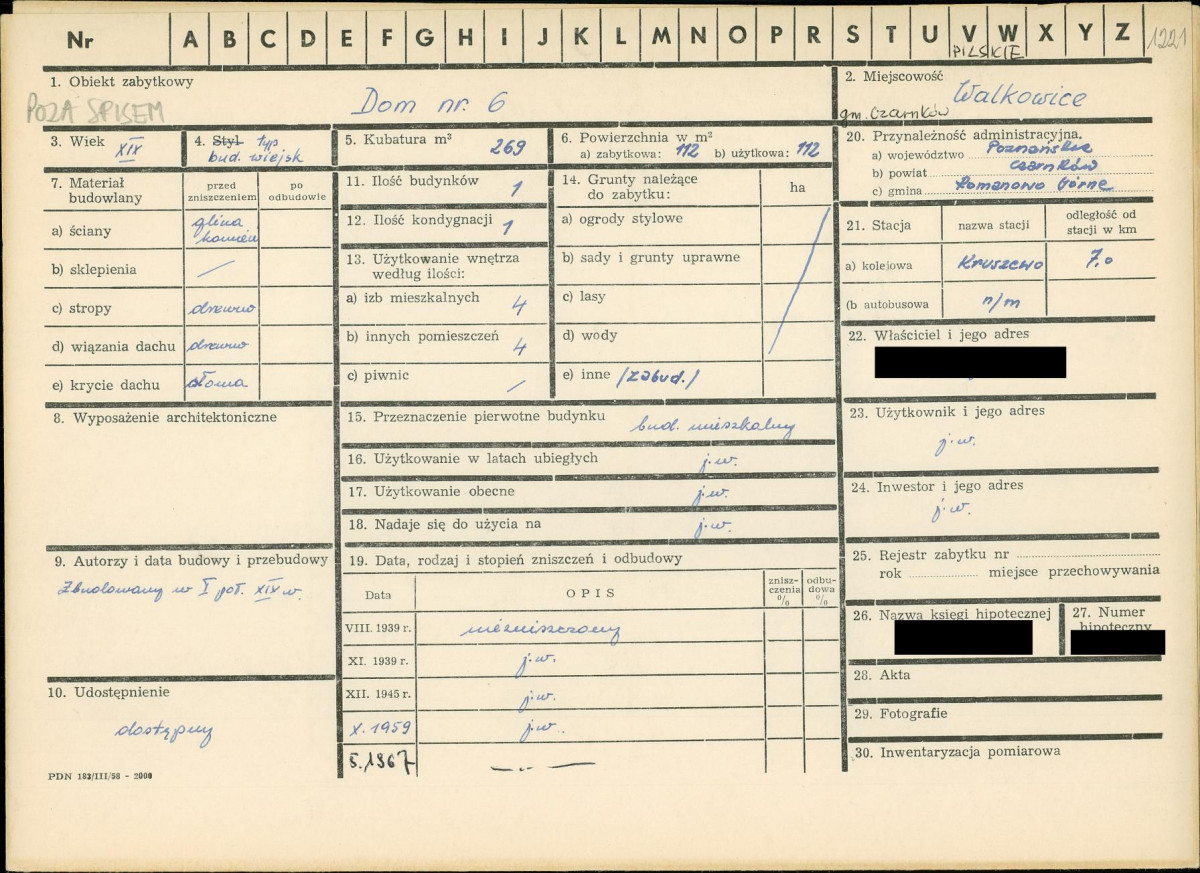 Nr A B C D E F G H I J K L M N O P R S T U V W X Y Z
PILSKIE
1221
1. Obiekt zabytkowy
POZA SPISEM
Dom nr. 6
2. Miejscowość
Walkowice
gm. Czarnków
3. Wiek XIX
4. Styl typ
bud. wiejsk
5. Kubatura m³ 269
6. Powierzchnia w m²
a) zabytkowa: 112 b) użytkowa: 112
20. Przynależność administracyjna,
a) województwo Poznańskie
b) powiat Czarnków
c) gmina Romanowo Górne
7. Materiał budowlany
przed zniszczeniem
po odbudowie
a) ściany glina kamień
b) sklepienia /
c) stropy drewno
d) wiązania dachu drewno
e) krycie dachu słoma
11. Ilość budynków 1
12. Ilość kondygnacji 1
13. Użytkowanie wnętrza
według ilości:
a) izb mieszkalnych 4
b) innych pomieszczeń 4
c) piwnic /
14. Grunty należące
do zabytku:
ha
a) ogrody stylowe
b) sady i grunty uprawne
c) lasy
d) wody
e) inne /zabud./
21. Stacja
nazwa stacji
odległość od stacji w km
a) kolejowa Kruszewo 7,0
(b autobusowa n/m
22. Właściciel i jego adres
8. Wyposażenie architektoniczne
15. Przeznaczenie pierwotne budynku bud. mieszkalny
16. Użytkowanie w latach ubiegłych j.w.
17. Użytkowanie obecne j.w.
18. Nadaje się do użycia na j.w.
23. Użytkownik i jego adres
j.w.
24. Inwestor i jego adres
j.w.
9. Autorzy i data budowy i przebudowy
Zbudowany w I poł. XIX w.
19. Data, rodzaj i stopień zniszczeń i odbudowy
Data
OPIS
znisz-
czenia
%
odbu-
dowa
%
VIII. 1939 r. niezniszczony
XI. 1939 r. j.w.
XII. 1945 r. j.w.
X. 1959 j.w.
5.1967 — .. —
25. Rejestr zabytku nr
rok miejsce przechowywania
26. Nazwa księgi hipotecznej
27. Numer
hipoteczny
28. Akta
29. Fotografie
30. Inwentaryzacja pomiarowa
10. Udostępnienie
dostępny
PDN 182/III/58 - 2000